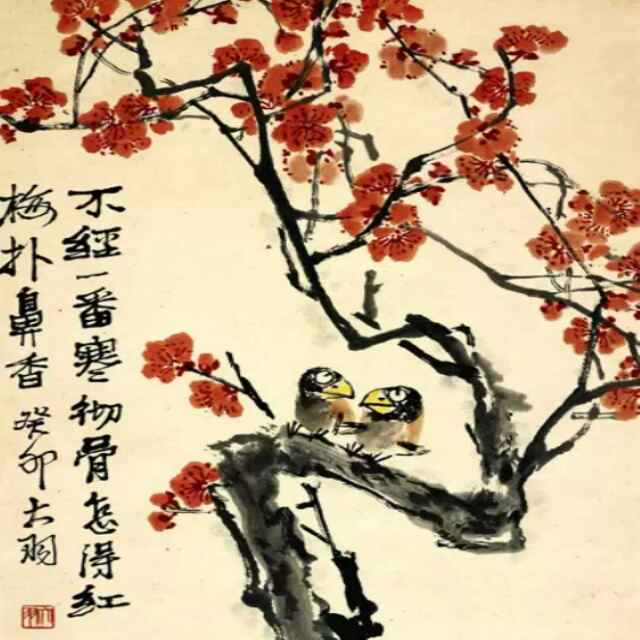 不經一番寒彻骨怎得红
梅扑鼻香癸卯大羽